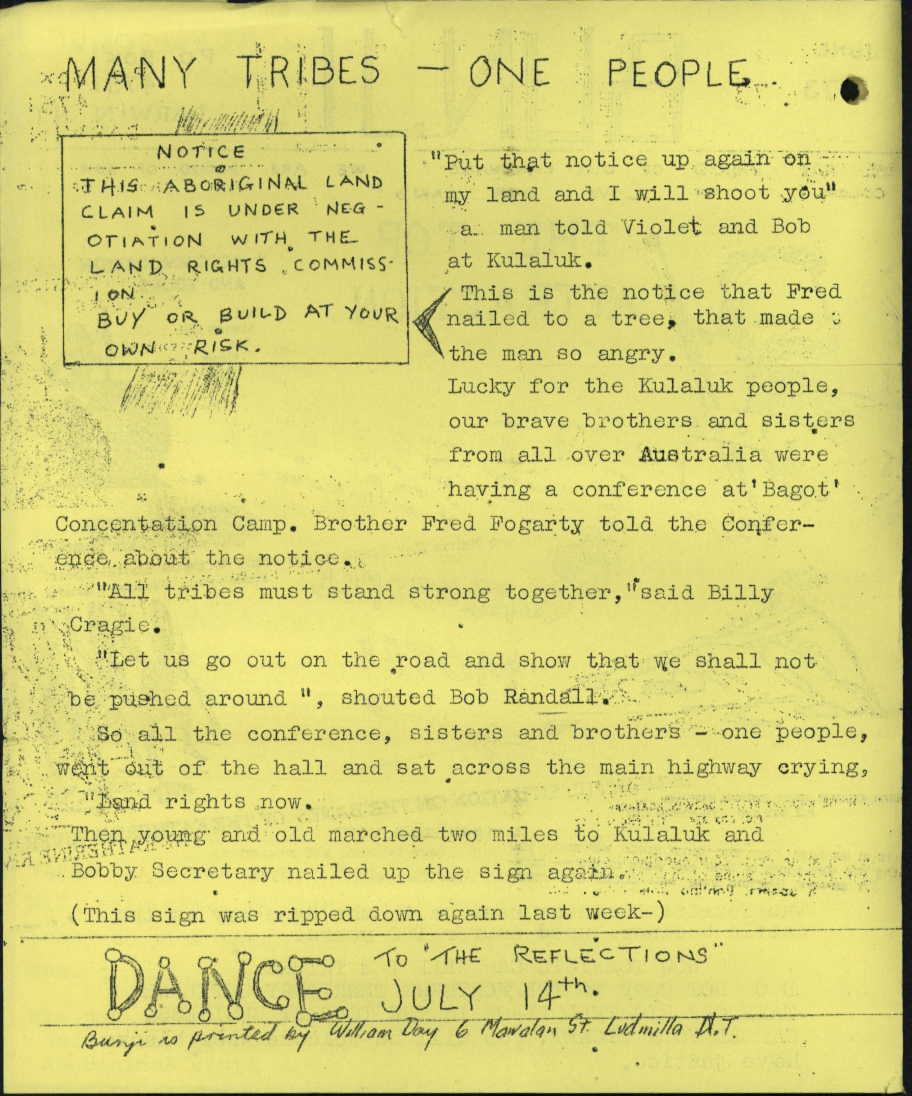 MANY TRIBES — ONE PEOPLE
NOTICE
THIS ABORIGINAL LAND
CLAIM IS UNDER NEG-
OTIATION WITH THE
LAND RIGHTS COMMISS-
ION
BUY OR BUILD AT YOUR
OWN RISK.
"Put that notice up again on
my land and I will shoot you"
a man told Violet and Bob
at Kulaluk.
This is the notice that Fred
nailed to a tree, that made
the man so angry.
Lucky for the Kulaluk people,
our brave brothers and sisters
from all over Australia were
having a conference at 'Bagot'
Concentation Camp. Brother Fred Fogarty told the Confer-
ence about the notice.
"All tribes must stand strong together," said Billy
Cragie.
"Let us go out on the road and show that we shall not
be pushed around ", shouted Bob Randall.
So all the conference, sisters and brothers - one people,
went out of the hall and sat across the main highway crying,
"Land rights now.
Then young and old marched two miles to Kulaluk and
Bobby Secretary nailed up the sign again.
(This sign was ripped down again last week-)
DANCE TO "THE REFLECTIONS"
JULY 14th.
Bunji is printed by William Day 6 Mawalan St Ludmilla N.T.